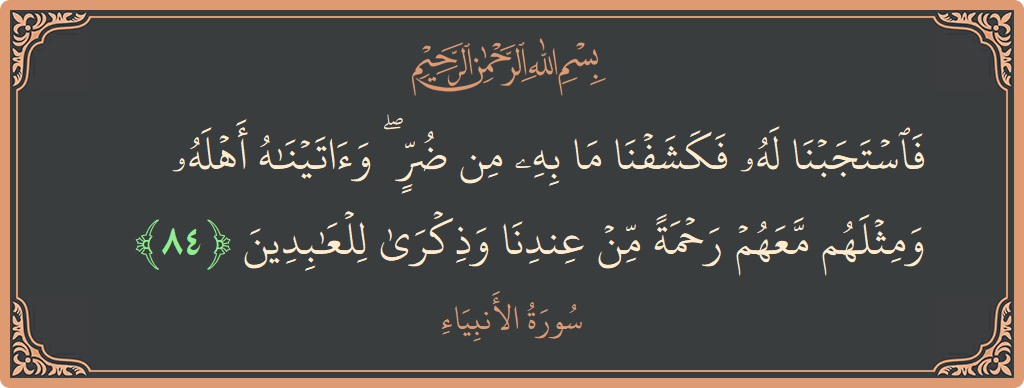 بِسْمِ اللَّهِ الرَّحْمَٰنِ الرَّحِيمِ
فَٱسْتَجَبْنَا لَهُۥ فَكَشَفْنَا مَا بِهِۦ مِن ضُرٍّ ۖ وَءَاتَيْنَٰهُ أَهْلَهُۥ
وَمِثْلَهُم مَّعَهُمْ رَحْمَةً مِّنْ عِندِنَا وَذِكْرَىٰ لِلْعَٰبِدِينَ ﴿٨٤﴾
سُورَةُ الأَنبِيَاءِ